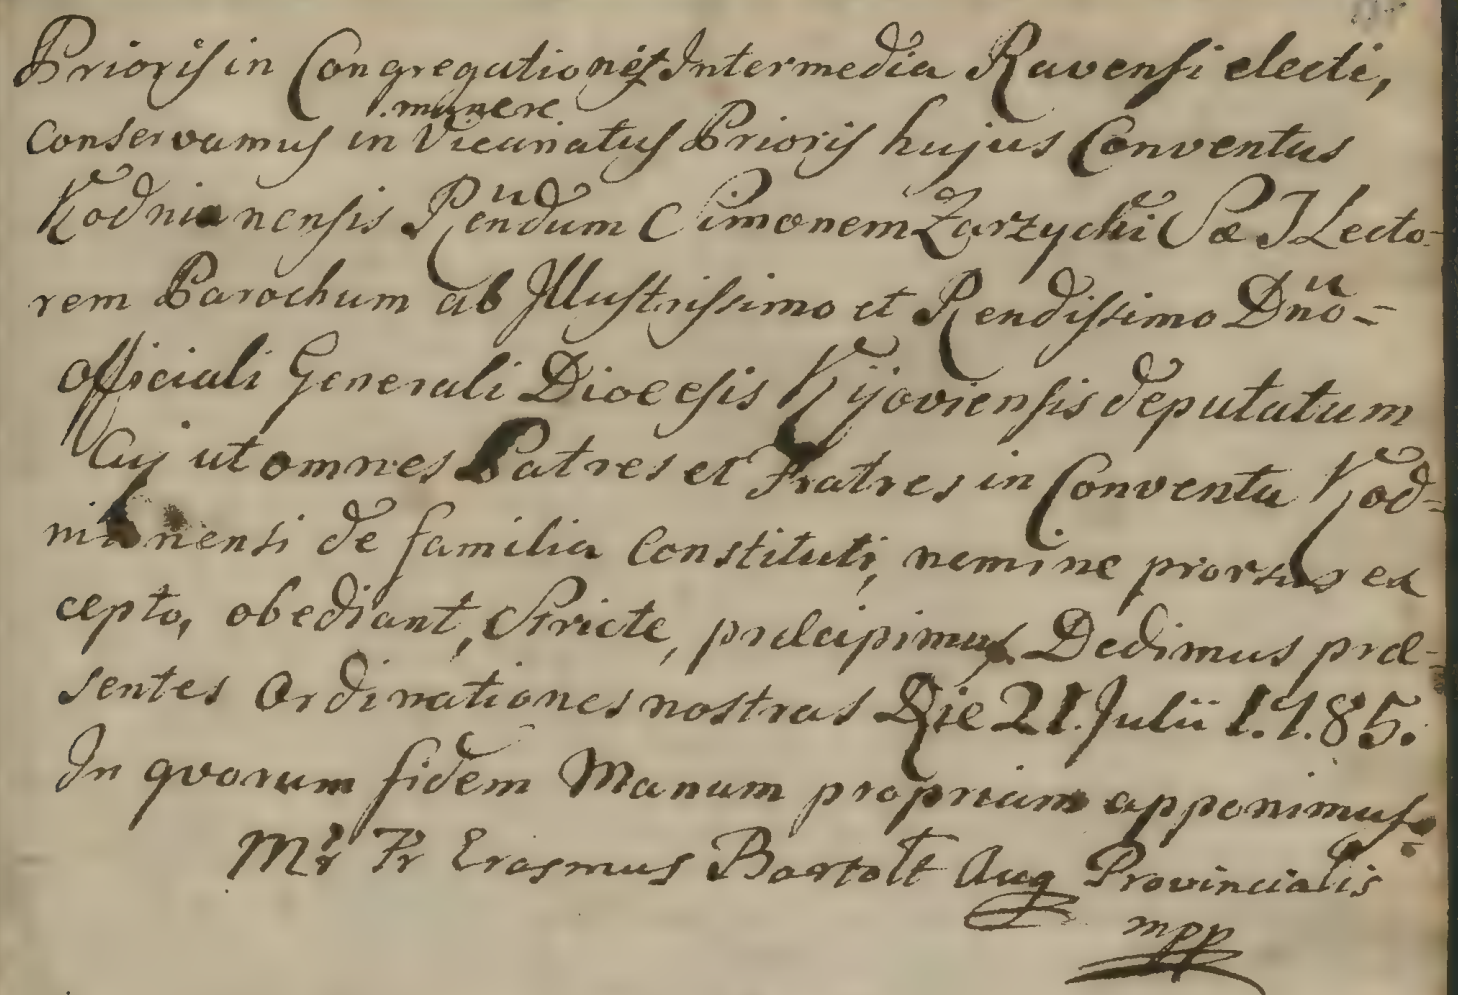 Prioris in Congregatione Intermedia Ravensi electi,
munere
conservamus in Vicariatus Prioris hujus Conventus
Kodnianensis Rendum Simonem Zarzychi Sæ T Lecto-
rem Parochum ab Illustrissimo et Rendissimo Dño-
officiali Generali Dioecesis Kijoviensis deputatum
Cuj ut omnes Patres et Fratres in Conventu Kod-
nianensi de familia Constituti, nemine prorsus ex
cepto, obediant, Stricte, præcipimus Dedimus præ-
sentes Ordinationes nostras Die 21. Julii 1.7.85.
In qvorum fidem Manum propriam apponimus.
Mr Fr Erasmus Bartolt Aug Provincialis
mpp